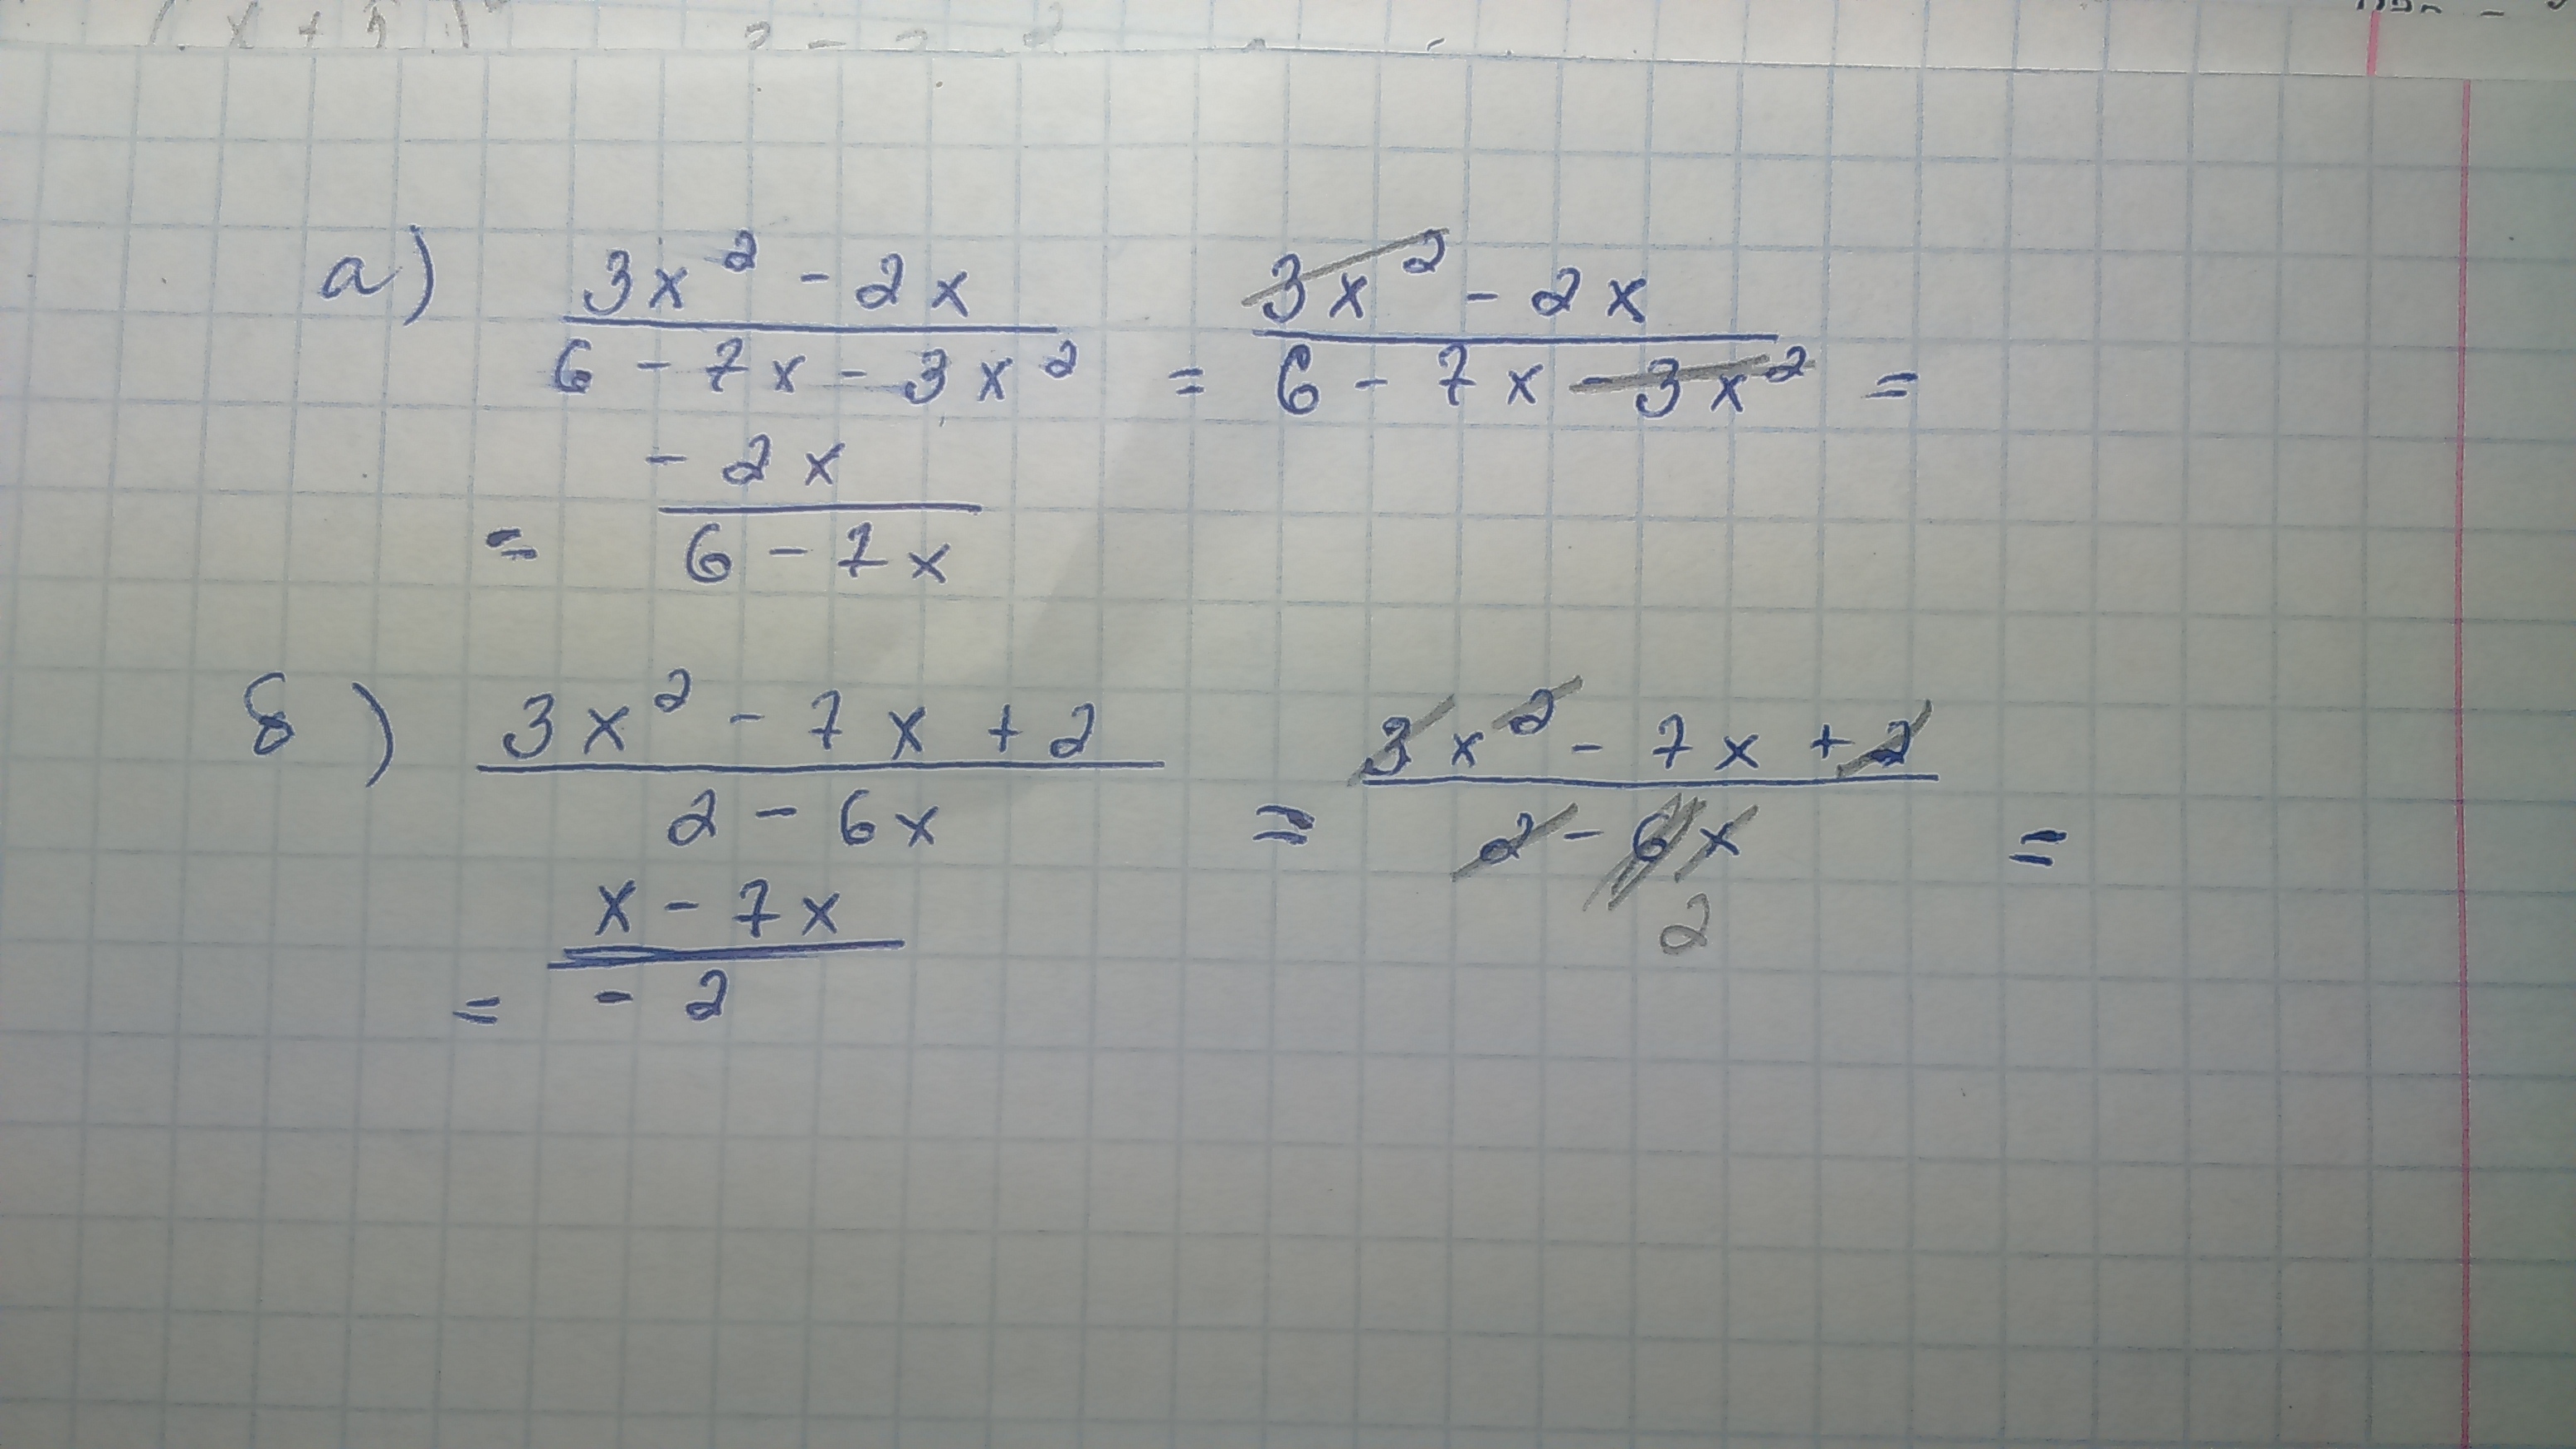 (x+5)
а) 3x² - 2x / 6 - 7x - 3x² = 3x² - 2x / 6 - 7x - 3x² =
= - 2x / 6 - 7x
б) 3x² - 7x + 2 / 2 - 6x = 3x² - 7x + 2 / 2 - 6x =
2
= x - 7x / - 2